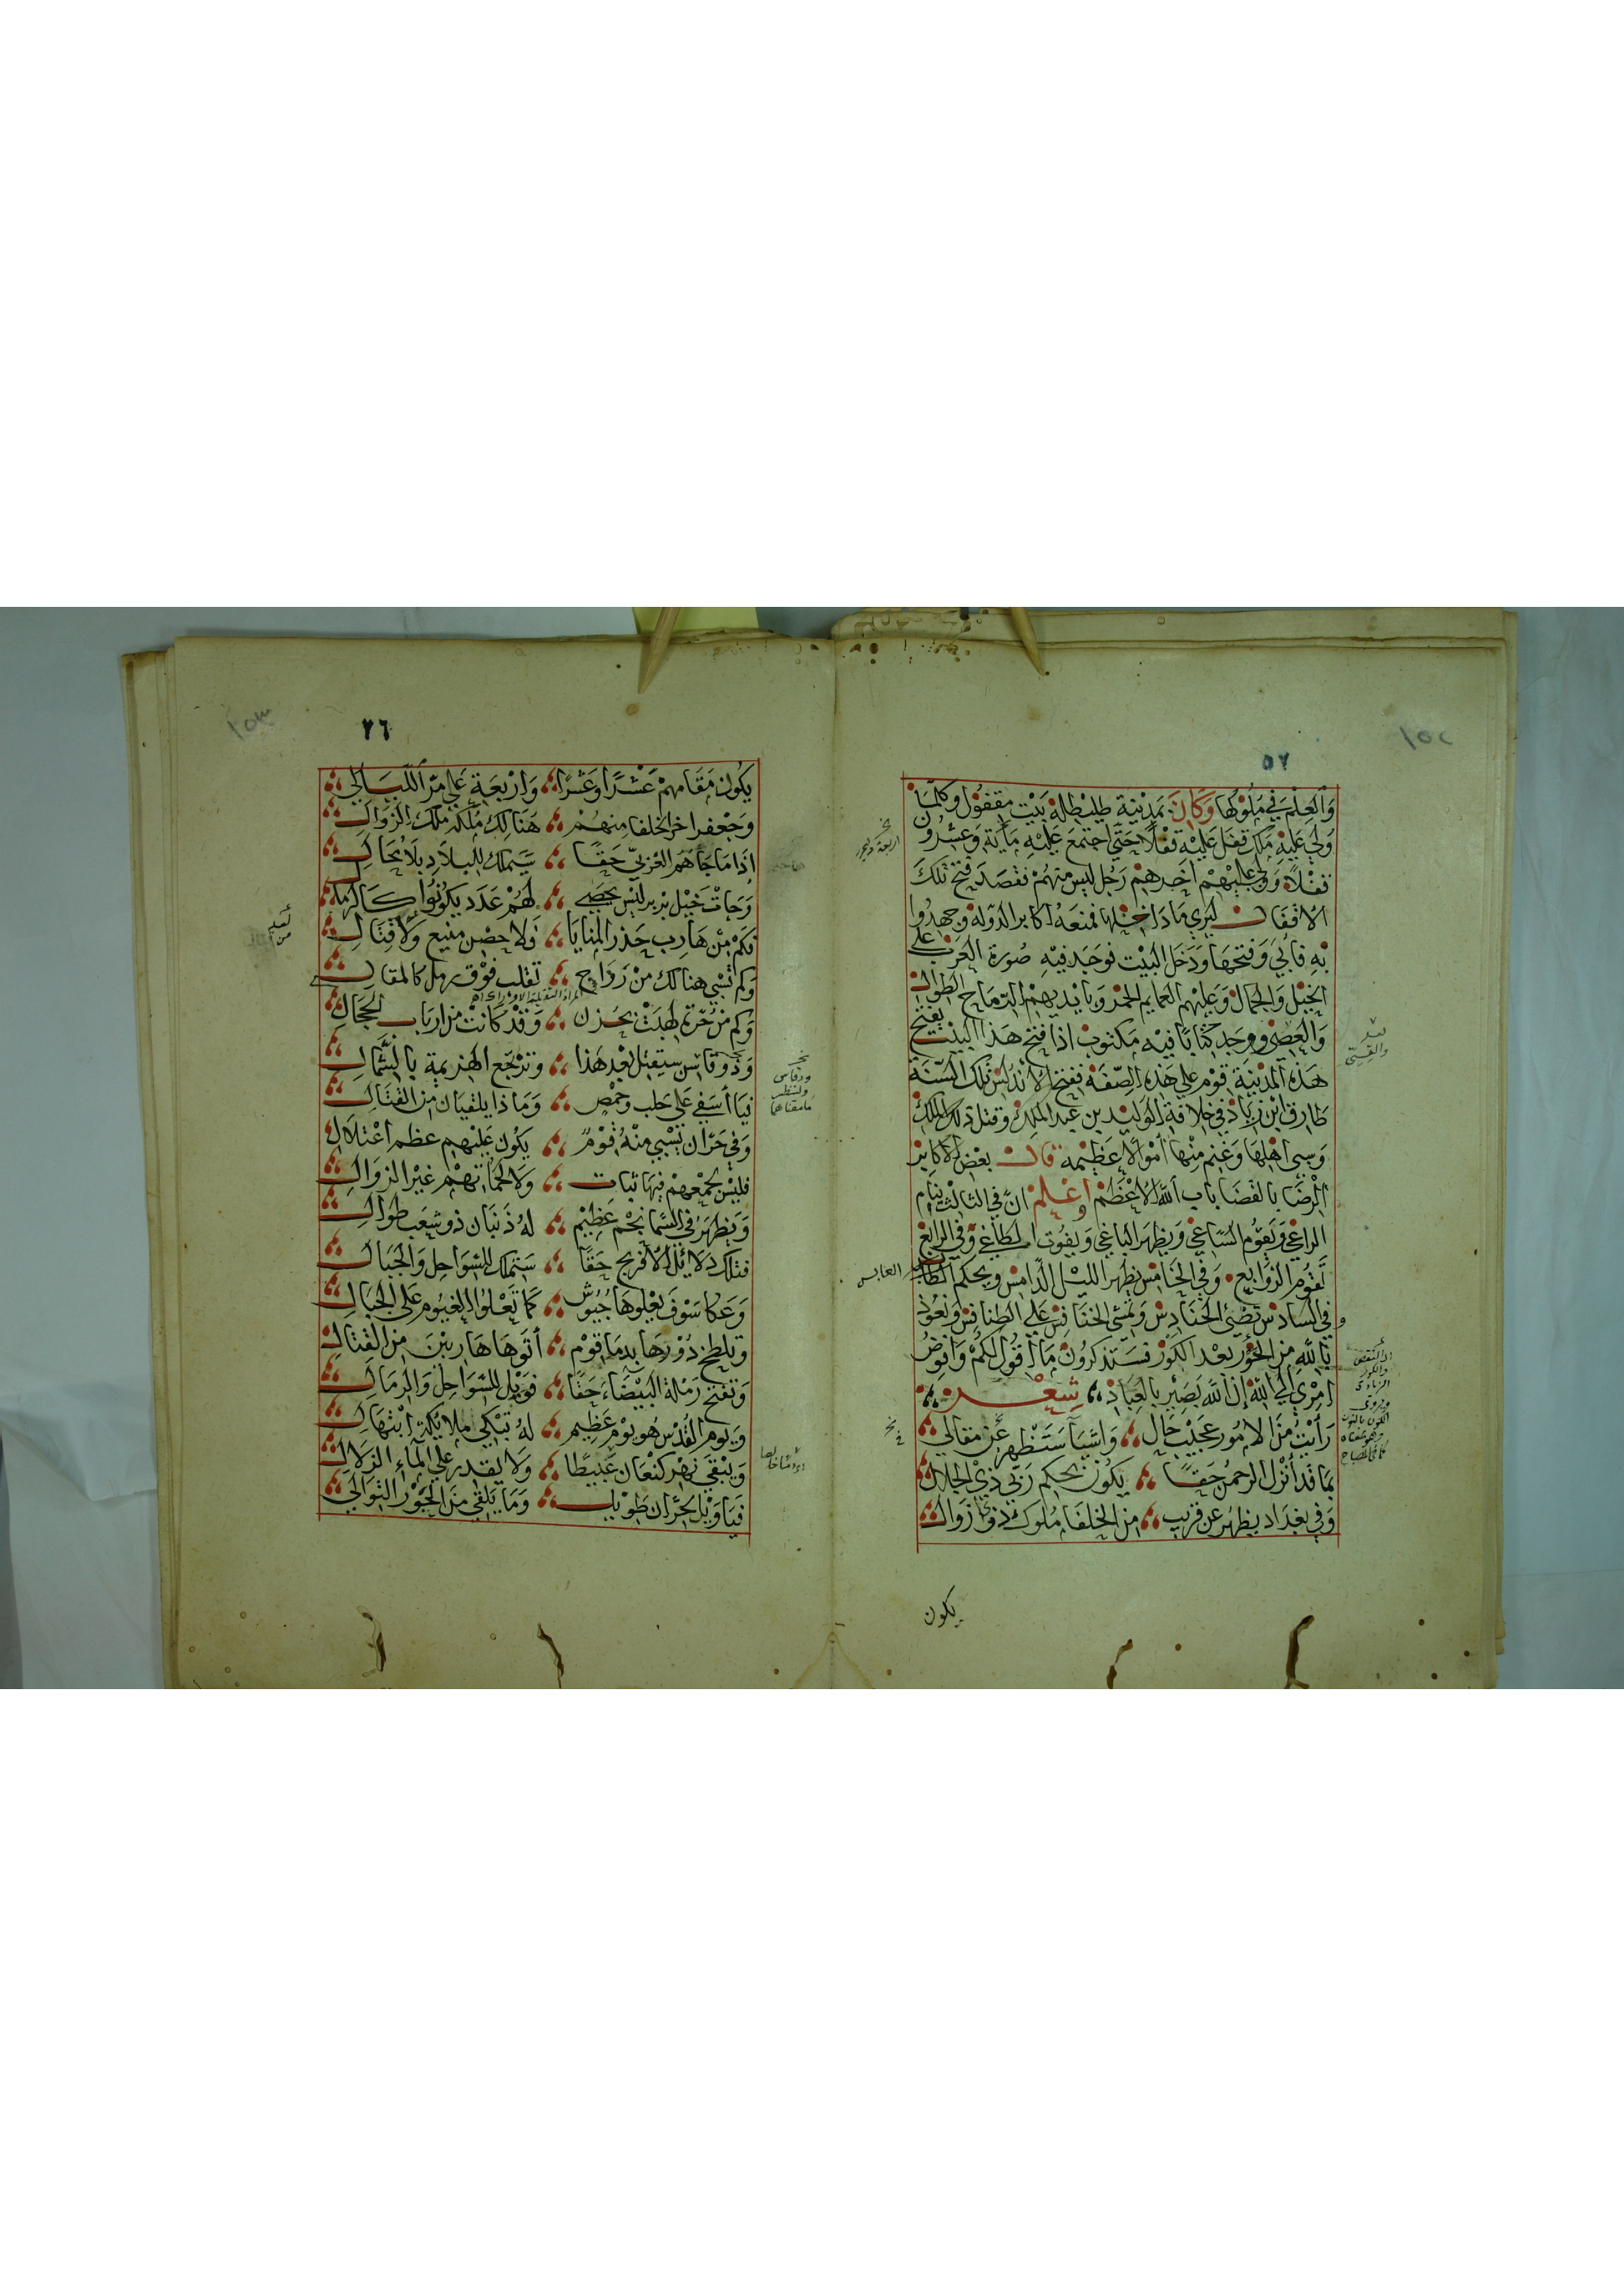 ١٥٢
٥٧
وَالعِلمَ في مُلوكها وَكَانَ بمَدِينة طليطلة بَيْت مقفول وكلمَا
وَلي عَليهِ مَلك قفل عَليْه قفلًا حَتى اجتمعَ عَليْهِ مَايَة وَعشرُون
قفْلاً وَوَلي عليْهمْ اخَرهمْ رَجل ليسَ منهُمْ فقصَدَ فتح تلكَ
الاقفال ليَري مَاذَا دَاخلها فمنعَهُ اكابر الدَّولة وجهدُوا
بهِ فابي وَفتحهَا وَدَخل البَيْت فوَجَد فيْهِ صُورة العَرب على
الخيْل وَالجمال وَعليْهم العمايم الحمْر وَبايْديهمْ الرّماح الطوال
وَالعِصي ووجَد كتَابًا فيْه مَكتوبْ اذا فتح هَذا البيْت يفتح
هَذه المدِينة قوْم علي هَذه الصّفَة ففتح الأندلس تلكَ السَّنَة
طَارق ابْن زيَاد في خلافة الوَليْد بن عبد الملِك وقتل ذلك الملكْ
وَسبى اهْلهَا وَغنم منْها أمْوالا عَظيْمة قال بعْض الاكابرْ
الرضَا بالقضَا باب الله الاعْظمْ وَاعْلمْ انّ في الثالثْ ينام
الراعي وَيَقوْم السّاعي وَيظهر البَاغي وَيفوت الطاغي وَفي الرابع
تَقوم الزوَابع وَفي الخَامسْ يظهر الليْل الدّامسْ ويحكم
في السادسْ تضئ الحنَادسْ وَتمشي الخنافس عَلى الطنافسْ وَنعُوذ
بالله منَ الحَوْر بَعْد الكوْر فسَتَذكرُونْ مَا أقُول لكمْ وَافوضُ
امْري الي الله انّ اللهَ بَصِيْر بالعِبَادْ شِعْر
رَأيْت منَ الامُور عجيْب حَال وَاشيَآ سَتَظهر عَن مقالي
بمَا قد أنْزل الرحمنُ حقّا يكُون بحكم رَبّي ذيْ الجلال
وَفي بغدَاد يظهرُ عن قريب منَ الخلفَا مُلوك ذو زوال
يكون
اربعة وعشر
العابس
١٥٣
٢٦
يَكُون مَقَامهمْ عَشْرًا وَعَشرًا وَارْبعَة عَلي مَرّ اللّيَالي
وَجعْفر اخر الخلفا منهُمْ هنَالكَ مُلكهُ ملك الزوال
إذَا مَا جَاهُم العَزبي حَقّا سَيَملك للبلادِ بلا محَال
وَجَاتْ خَيْل بَرْبر ليْس تحصَى لهُمْ عَدَد يكونوا كالرمَال
فكمْ منْ هَارب حَذر المنايَا وَلا حِصْن منيع وَلا قتال
وَكم تسْبي هنالكَ منْ رَوَاج تقلب فوْق رمل كالمقالي
وَكم منْ حُرّة لهدَتْ بحزن وَقدْ كانتْ من اربَاب الحجال
وَذو قاس سيقتل بعْد هَذا وَترْجع الهزيمة بالشمَال
فيَا أسَفي عَلي حَلب وحمْص وَمَاذا يلقيَان من القتال
وَفي حَرّان تسْبي منْهُ قوْمٌ يكُون عليْهم عظم اعْتلال
فليْسَ لجمْعهمْ فيهَا ثبات وَلا لحمَاتهمْ غيْر الزوال
وَيظهرُ في السّما نجْم عَظيْم لهُ ذَنبَان ذو شعَب طوَال
فتلك دَلائل الافرنج حَقّا ستملك للسّوَاحِل وَالجبَال
وَعكا سَوْفَ يعْلوهَا جُيُوش كمَا تَعْلوا الغيُوم عَلى الجبَال
وتلطخ دُوْرهَا بدمَا قوْم أتوْهَا هَاربيْنَ من القتال
وَتفتح رَمْلة البَيْضَاءَ حَقّا فوَيْل للسّوَاحل وَالرمال
وَيوم القدْس هُو يوْم عَظيم لهُ تبْكي ملايكة ابتهَال
وَيبْقي نهْر كنعَان عَبيْطًا وَلا يقدر علي المآء الزلال
فيَا وَيل لحرّان طويل وَمَا يَلقي منَ الجَوْر التوَالي